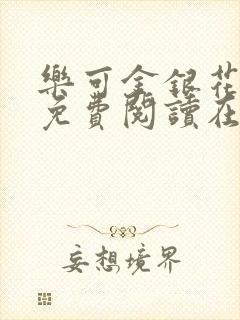 樂可金銀花
免費閱讀在
妄想境界